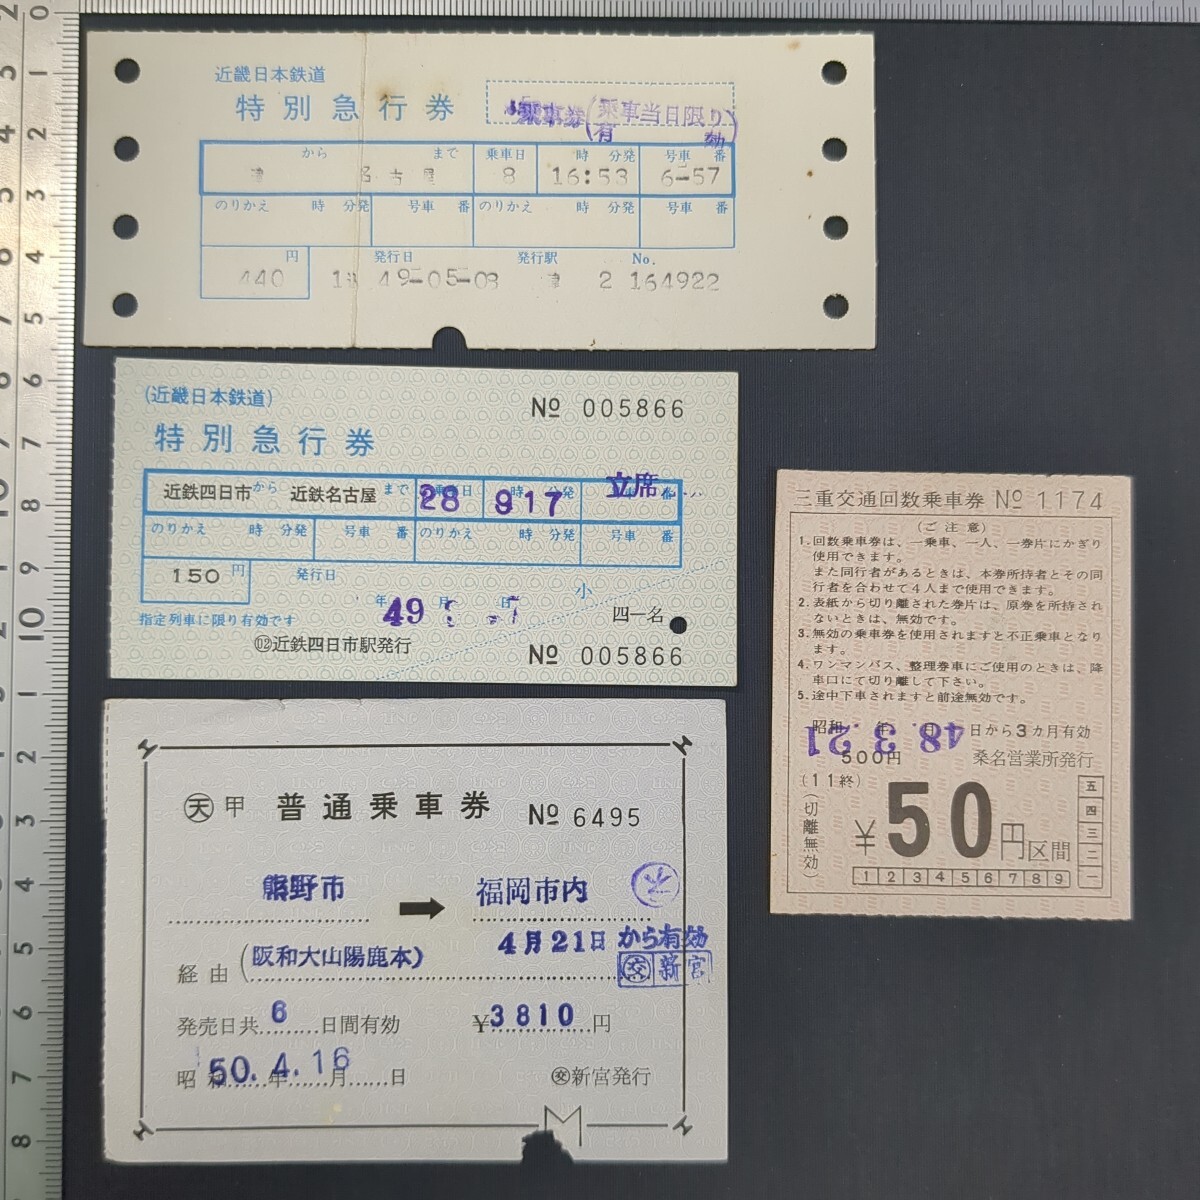 近畿日本鉄道
特別急行券
乗車券(乗車当日限り有効)
から まで 乗車日 時 分発 号車 番
津 名古屋 8 16:53 6-57
のりかえ 時 分発 号車 番 のりかえ 時 分発 号車 番
円 発行日 発行駅 No.
440 49-05-08 津 2 164922
(近畿日本鉄道)
No 005866
特別急行券
近鉄四日市から 近鉄名古屋まで 28 917 立席
のりかえ 時 分発 号車 番 のりかえ 時 分発 号車 番
150円 発行日
年 49 月 日 小
指定列車に限り有効です 四一名
近鉄四日市駅発行
No 005866
天 甲 普通乗車券 No 6495
熊野市 ➡ 福岡市内
4月21日から有効
経由(阪和大山陽鹿本)
交 新宮
発売日共6日間有効 ¥3810円
昭和50.4.16年月日 交新宮発行
三重交通回数乗車券 No 1174
(ご注意)
1.回数乗車券は、一乗車、一人、一券片にかぎり
使用できます。
また同行者があるときは、本券所持者とその同
行者を合わせて4人まで使用できます。
2.表紙から切り離された券片は、原券を所持され
ないときは、無効です。
3.無効の乗車券を使用されますと不正乗車となり
ます。
4.ワンマンバス、整理券車にご使用のときは、降
車口にて切り離して下さい。
5.途中下車されますと前途無効です。
昭和 年 月 日から3カ月有効
48.3.21
500円 桑名営業所発行
(11終)
(切離無効)
¥50円区間
五
四
三
二
一
1 2 3 4 5 6 7 8 9